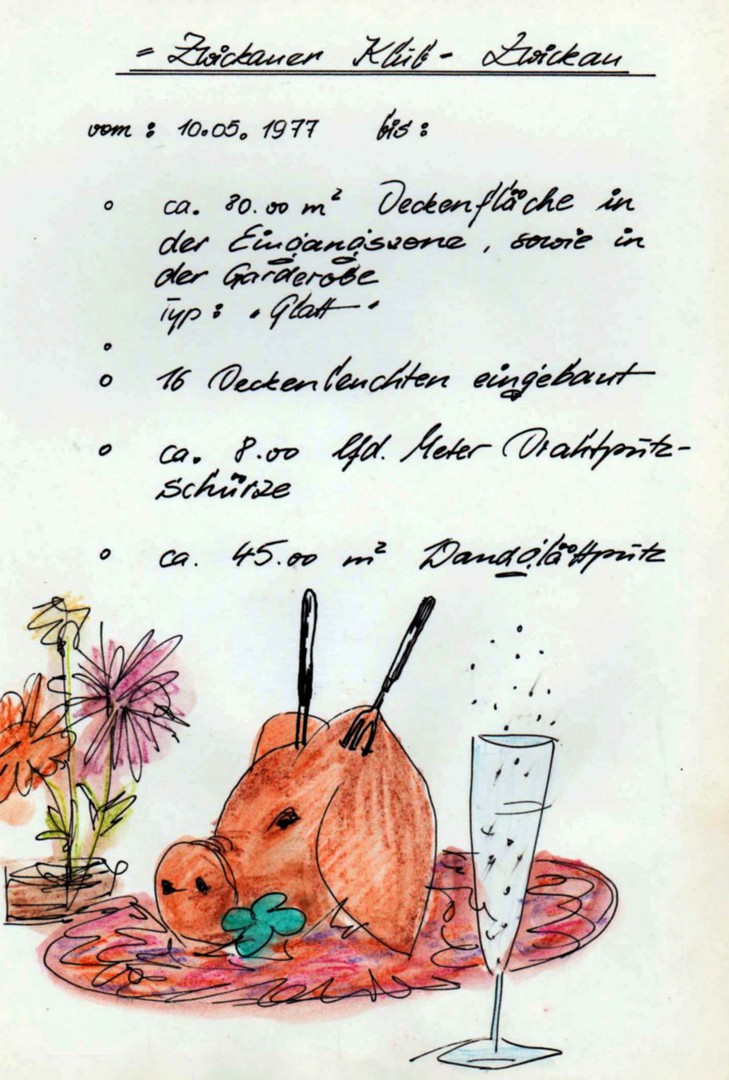 = Zwickauer Klub - Zwickau
vom : 10.05. 1977 bis :
o ca. 80.00 m² Deckenfläche in
der Eingangszone, sowie in
der Garderobe
Typ : "Glatt"
o
o 16 Deckenleuchten eingebaut
o ca. 8.00 lfd. Meter Drahtputz-
schürze
o ca. 45.00 m² Wandglättputz